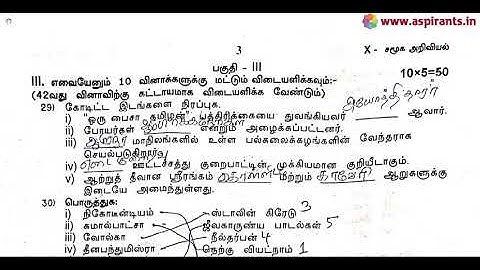 www.aspirants.in
3
X - சமூக அறிவியல்
பகுதி - III
III. எவையேனும் 10 வினாக்களுக்கு மட்டும் விடையளிக்கவும்:-
10×5=50
(42வது வினாவிற்கு கட்டாயமாக விடையளிக்க வேண்டும்)
29) கோடிட்ட இடங்களை நிரப்புக.
i) "ஒரு பைசா தமிழன்" பத்திரிக்கையை துவங்கியவர் அயோத்தி தாசர் ஆவார்.
ii) பேரயர்கள் என்றும் அழைக்கப்பட்டனர்.
iii) மாநிலங்களில் உள்ள பல்கலைக்கழகங்களின் வேந்தராக
செயல்படுகிறார்.
iv) ஊட்டச்சத்து குறைபாட்டின் முக்கியமான குறியீடாகும்.
v) ஆற்றுத் தீவான ஸ்ரீரங்கம் மற்றும் காவேரி ஆறுகளுக்கு
இடையே அமைந்துள்ளது.
30) பொருத்துக:
i) நிகோடீன்டியம் ஸ்டாவின் கிரேடு 3
ii) கமால்பாட்சா ஜீவகாருண்ய பாடல்கள் 5
iii) வோல்கா நீல்தர்பன் 4
iv) தீனபந்துமித்ரா நெற்கு வியட்நாம் 1